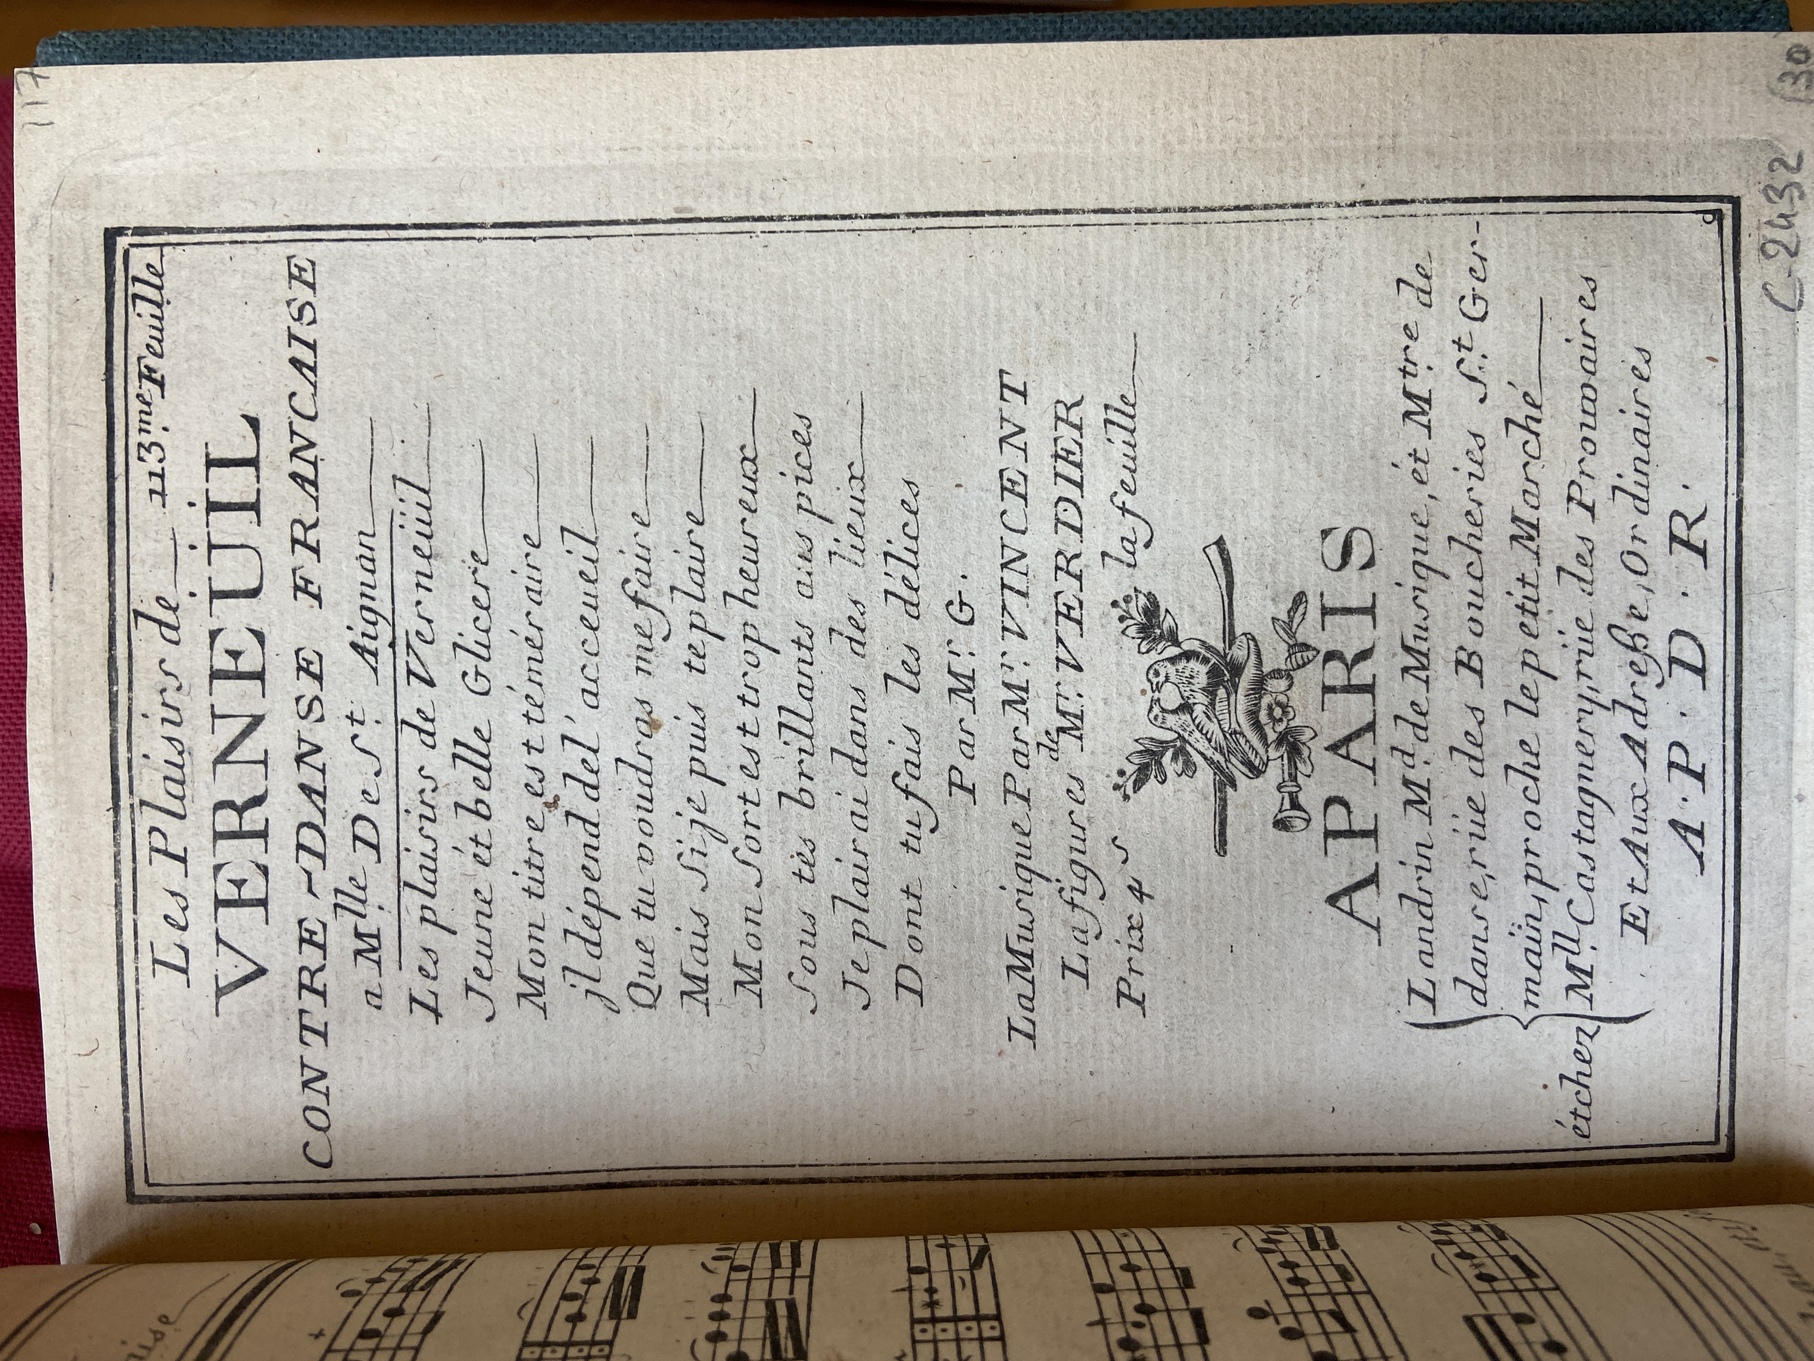 117
Les Plaisirs de 113.me Feuille
VERNEÜIL
CONTRE-DANSE FRANCAISE
a Mlle De St. Aignan
Les plaisirs de Verneüil
Jeune ét belle Glicere
Mon titre est téméraire
jl dépend de l'acceueil
Que tu voudras me faire
Mais Si je puis te plaire
Mon Sort est trop heureux
Sous tes brillants auspices
Je plairai dans des lieux
Dont tu fais les délices
Par Mr. G.
La Musique Par Mr. VINCENT
La figures de Mr. VERDIER
Prix 4 s la feuille
A PARIS
Landrin Md. de Musique, ét Mtre de
danse, rüe des Boucheries St. Ger-
maïn, proche le petit Marché
étchez Mll. Castagnery, rüe des Prouvaires
Et Aux Adreße, Ordinaires
A . P . D . R .
C-2432 (30